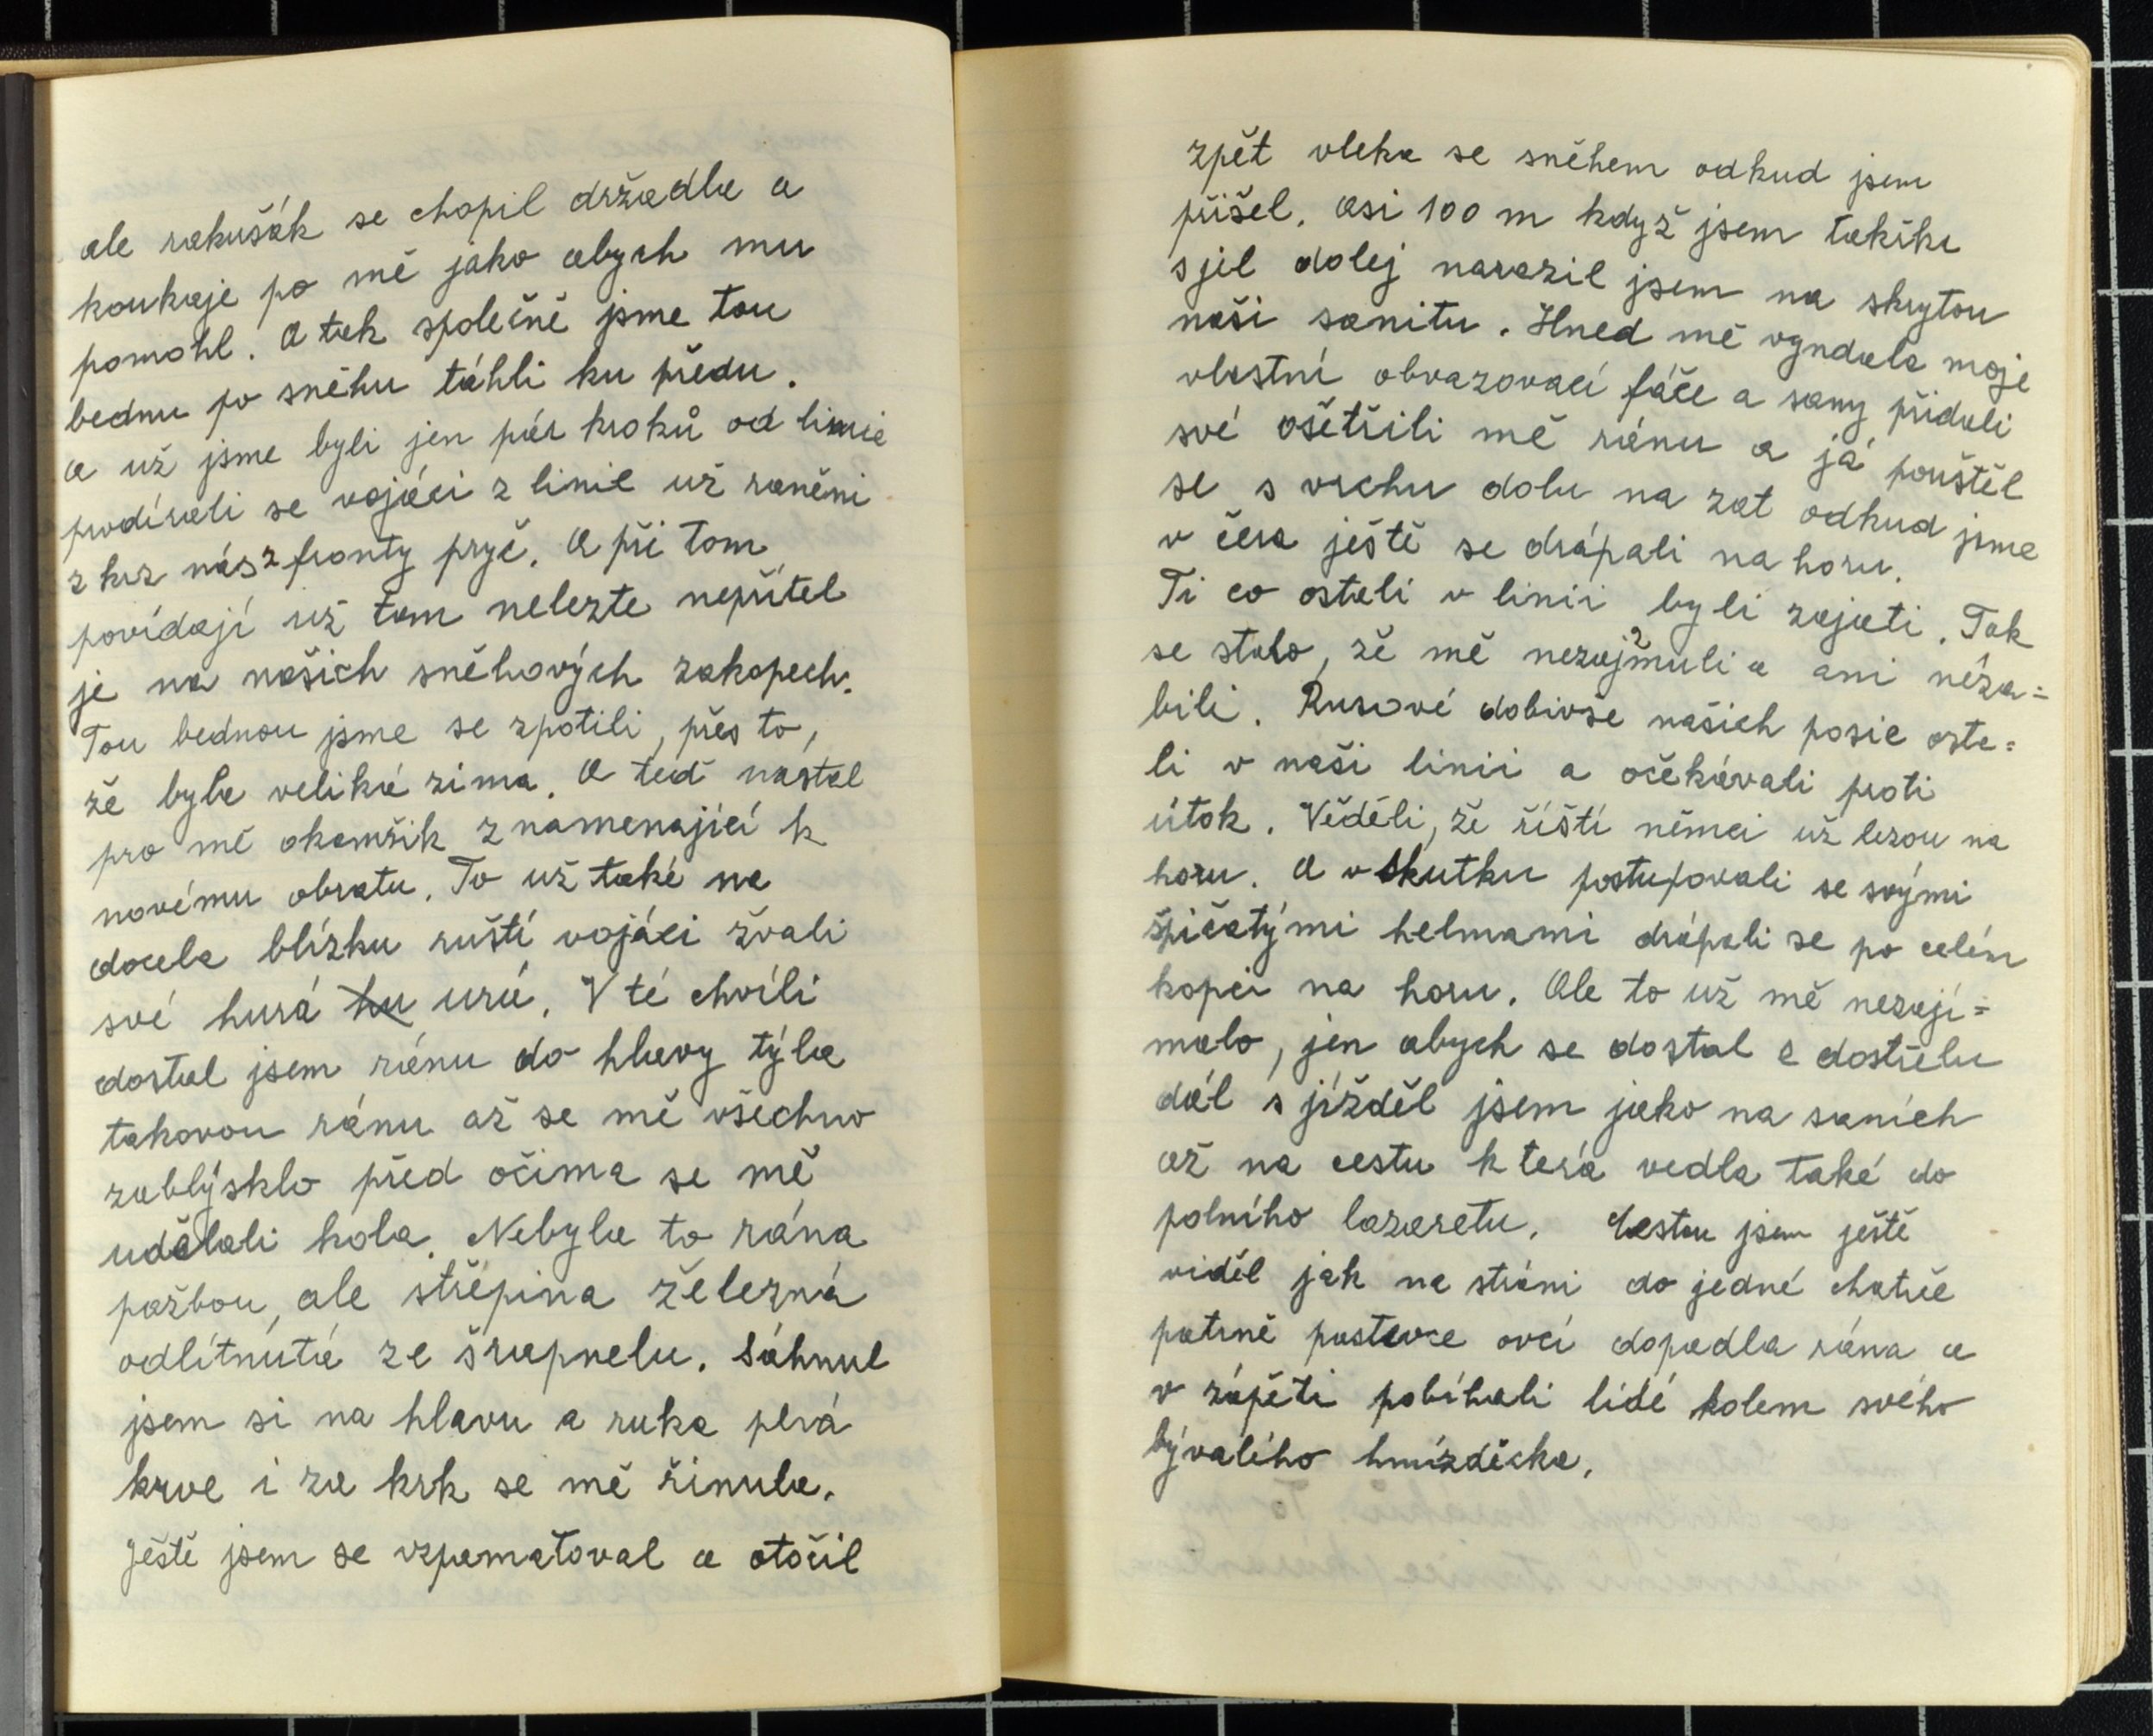 ale rakušák se chopil držadla a
koukaje po mě jako abych mu
pomohl. A tak společně jsme tou
bednu po sněhu táhli ku předu.
a už jsme byli jen pár kroků od linie
prodírali se vojáci z linie už raněni
z krz nás z fronty pryč. A při tom
povídají už tam nelezte nepřítel
je na našich sněhových zakopech.
Tou bednou jsme se zpotili, přes to,
že byla veliká zima. A teď nastal
pro mě okamžik znamenající k
novému obratu. To už také na
docela blízku ruští vojáci žvali
své hurá hu urá. V té chvíli
dostal jsem ránu do hlavy týla
takovou ránu až se mě všechno
zablýsklo před očima se mě
udělali kola. Nebyla to rána
pažbou, ale střepina železná
odlítnutá ze šrapnelu. Sáhnul
jsem si na hlavu a ruka plná
krve i za krk se mě řinula.
Ještě jsem se vzpamatoval a otočil
zpět vleka se sněhem odkud jsem
přišel. Asi 100 m když jsem takřka
sjel dolej narazil jsem na skrytou
naši sanitu. Hned mě vyndala moje
vlastní obvazovací fáče a samy přidali
své ošetřili mě ránu a já pouštěl
se s vrchu dolu na zat odkud jsme
v čera ještě se drápali na horu.
Ti co ostali v linii byli zajati. Tak
se stalo, že mě nezajmuli a ani néza=
bili. Rusové dobivše našich posic osta=
li v naši linii a očekávali proti
útok. Věděli, že říští němci už lezou na
horu. A v skutku postupovali se svými
špičatými helmami drápali se po celém
kopci na horu. Ale to už mě nezají=
malo, jen abych se dostal z dostřelu
dál s jížděl jsem jako na saních
až na cestu k terá vedla také do
polního lazaretu. Cestou jsem ještě
viděl jak na stráni do jedné chatrče
patrně pastevce ovcí dopadla rána a
v zápěti pobíhali lidé kolem svého
bývalího hnízděcka.